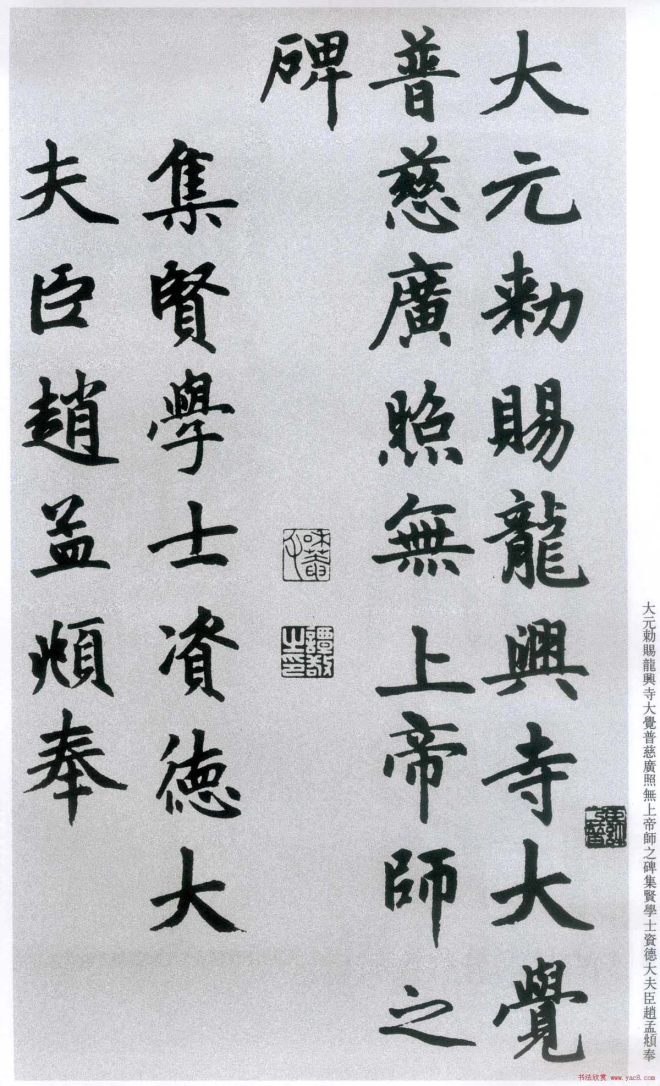 大元勑賜龍興寺大覺
普慈廣照無上帝師之
碑
集賢學士資德大
夫臣趙孟頫奉
大元勅賜龍興寺大覺普慈廣照無上帝師之碑集賢學士資德大夫臣趙孟頫奉
书法欣赏 www.yac8.com